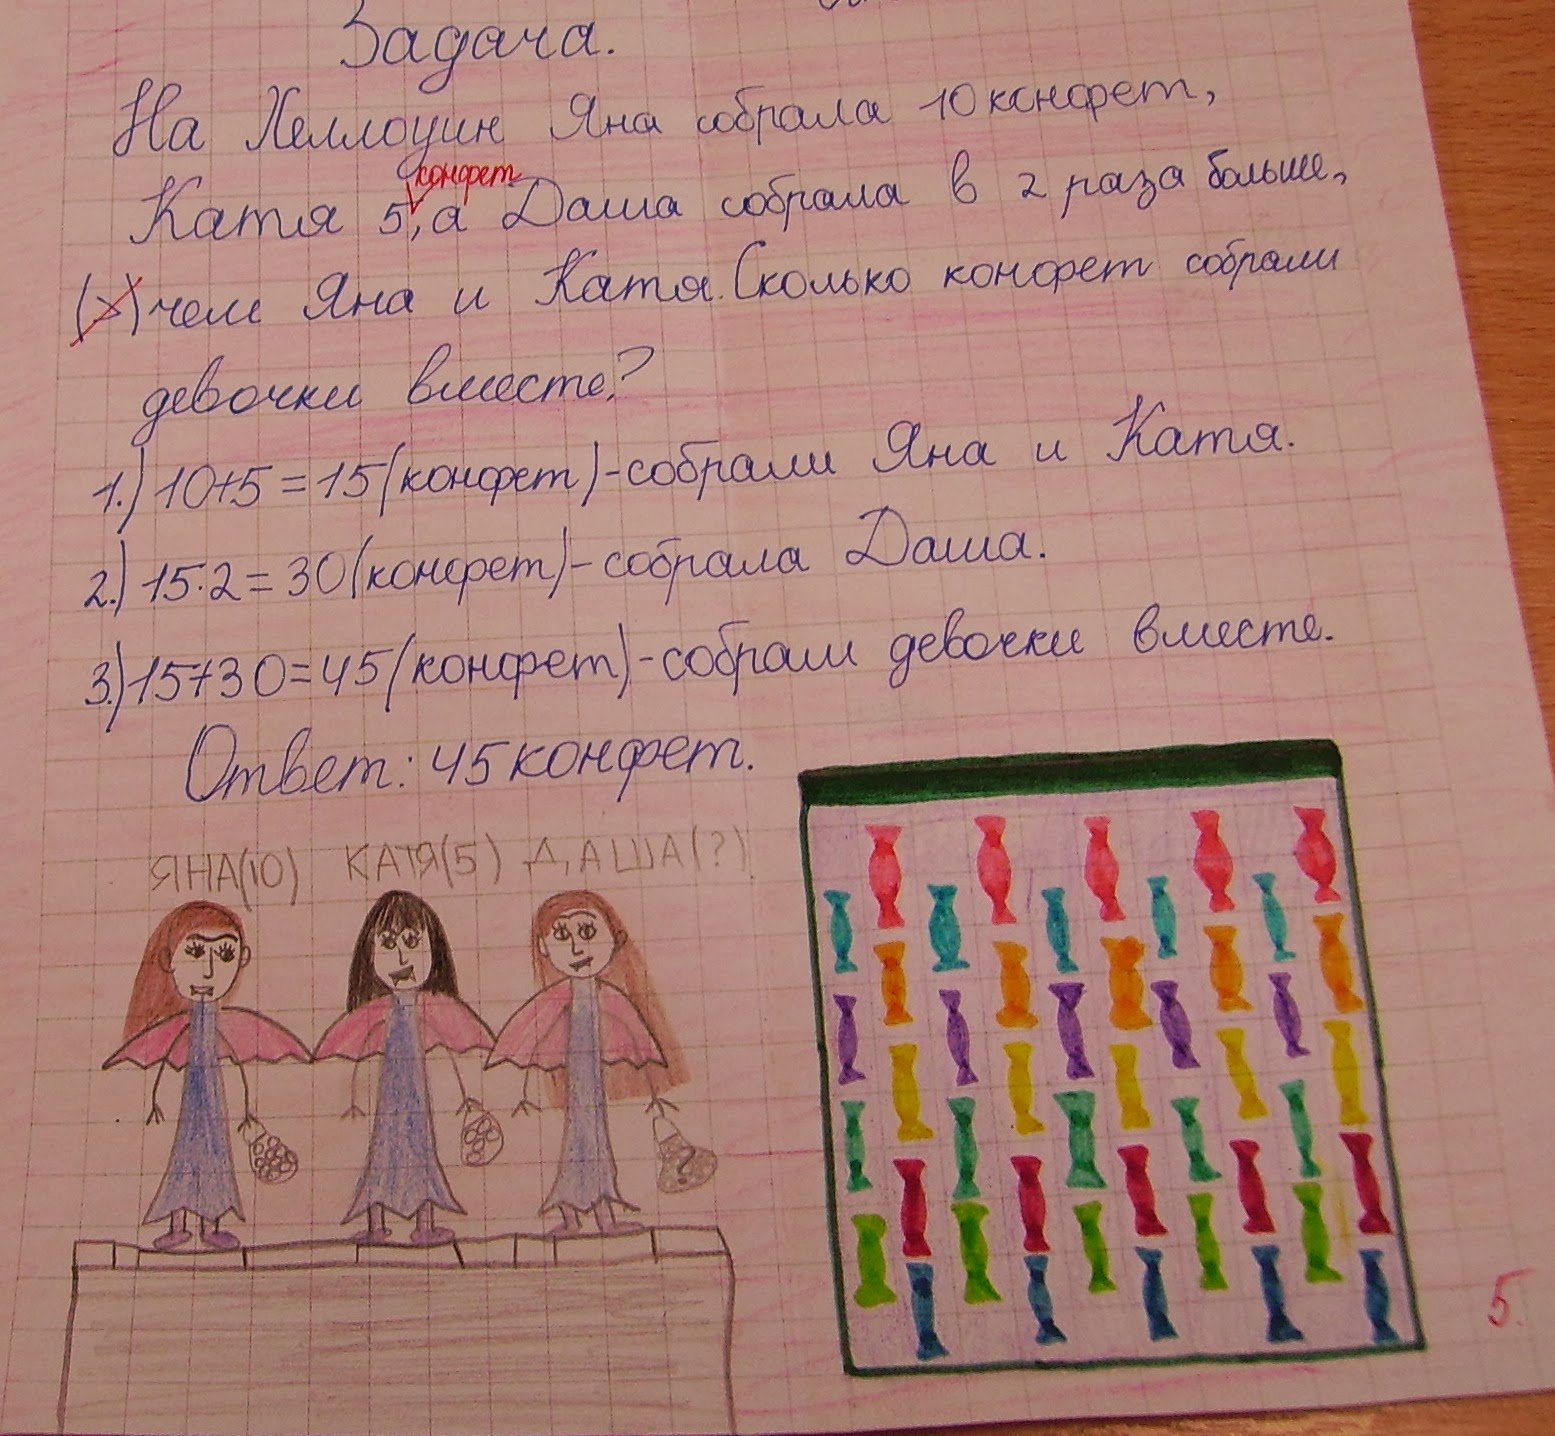 Задача.
На Хеллоуин Яна собрала 10 конфет,
конфет
Катя 5, а Даша собрала в 2 раза больше,
(>) чем Яна и Катя. Сколько конфет собрали
девочки вместе?
1.) 10+5=15(конфет)-собрали Яна и Катя.
2.) 15·2=30(конфет)-собрала Даша.
3.) 15+30=45(конфет)-собрали девочки вместе.
Ответ: 45 конфет.
ЯНА(10) КАТЯ(5) ДАША(?)
?
5.